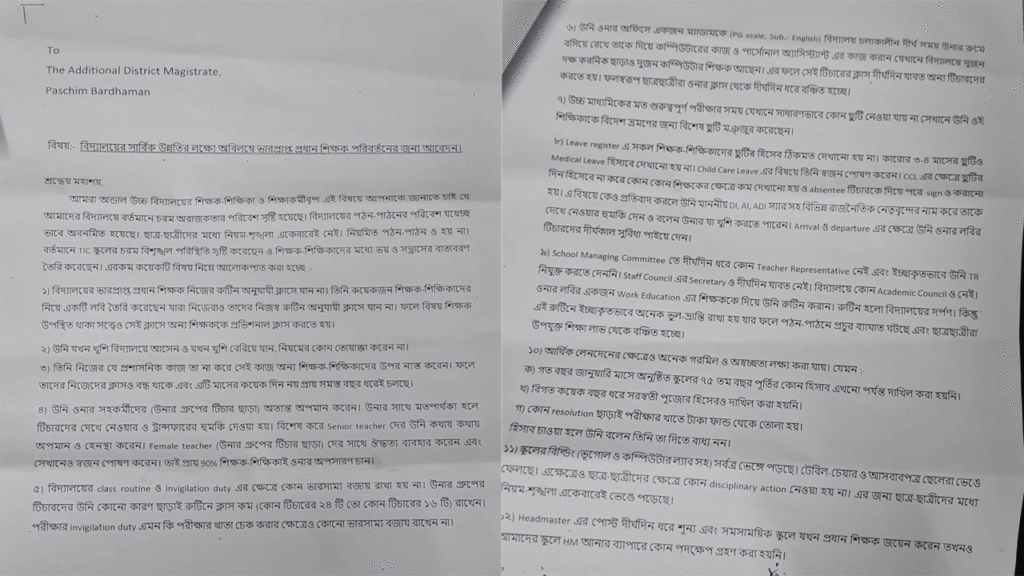 To
The Additional District Magistrate,
Paschim Bardhaman
বিষয়:- বিদ্যালয়ের সার্বিক উন্নতির লক্ষ্যে অবিলম্বে ভারপ্রাপ্ত প্রধান শিক্ষক পরিবর্তনের জন্য আবেদন।
শ্রদ্ধেয় মহাশয়,
আমরা অন্ডাল উচ্চ বিদ্যালয়ের শিক্ষক-শিক্ষিকা ও শিক্ষাকর্মীবৃন্দ এই বিষয়ে আপনাকে জানাতে চাই যে
আমাদের বিদ্যালয়ে বর্তমানে চরম অরাজকতার পরিবেশ সৃষ্টি হয়েছে। বিদ্যালয়ের পঠন-পাঠনের পরিবেশ যথেচ্ছ
ভাবে অবনমিত হয়েছে। ছাত্র-ছাত্রীদের মধ্যে নিয়ম-শৃঙ্খলা একেবারেই নেই। নিয়মিত পঠন-পাঠন ও হয় না।
বর্তমানে TIC স্কুলের চরম বিশৃঙ্খল পরিস্থিতি সৃষ্টি করেছেন ও শিক্ষক-শিক্ষিকাদের মধ্যে ভয় ও সন্ত্রাসের বাতাবরণ
তৈরি করেছেন। এরকম কয়েকটি বিষয় নিম্নে আলোকপাত করা হচ্ছে :-
১) বিদ্যালয়ের ভারপ্রাপ্ত প্রধান শিক্ষক নিজের রুটিন অনুযায়ী ক্লাসে যান না। তিনি কয়েকজন শিক্ষক-শিক্ষিকাদের
নিয়ে একটি লবি তৈরি করেছেন যারা নিজেরাও তাদের নিজস্ব রুটিন অনুযায়ী ক্লাসে যান না। ফলে বিষয় শিক্ষক
উপস্থিত থাকা সত্ত্বেও সেই ক্লাসে অন্য শিক্ষককে প্রভিশনাল ক্লাস করতে হয়।
২) উনি যখন খুশি বিদ্যালয়ে আসেন ও যখন খুশি বেরিয়ে যান, নিয়মের কোন তোয়াক্কা করেন না।
৩) তিনি নিজের যে প্রশাসনিক কাজ তা না করে সেই কাজ অন্য শিক্ষক-শিক্ষিকাদের উপর ন্যস্ত করেন। ফলে
তাদের নিজেদের ক্লাসও বন্ধ থাকে এবং এটি মাসের কয়েক দিন নয় প্রায় সমস্ত বছর ধরেই চলছে।
৪) উনি ওনার সহকর্মীদের (উনার গ্রুপের টিচার ছাড়া) অত্যন্ত অপমান করেন। উনার সাথে মতপার্থক্য হলে
টিচারদের দেখে নেওয়ার ও ট্রান্সফারের হুমকি দেওয়া হয়। বিশেষ করে Senior teacher দের উনি কথায় কথায়
অপমান ও হেনস্থা করেন। Female teacher (উনার গ্রুপের টিচার ছাড়া) দের সাথে ঔদ্ধত্য ব্যবহার করেন এবং
সেখানেও স্বজন পোষণ করেন। তাই প্রায় 90% শিক্ষক-শিক্ষিকাই ওনার অপসারণ চান।
৫) বিদ্যালয়ের class routine ও invigilation duty এর ক্ষেত্রে কোন ভারসাম্য বজায় রাখা হয় না। উনার গ্রুপের
টিচারদের উনি কোনো কারণ ছাড়াই রুটিনে ক্লাস কম (কোন টিচারের ২৪ টি তো কোন টিচারের ১৬ টি) রাখেন।
পরীক্ষার invigilation duty এমন কি পরীক্ষার খাতা চেক করার ক্ষেত্রেও কোনো ভারসাম্য বজায় রাখেন না।
৬) উনি ওনার অফিসে একজন ম্যাডামকে (PG scale, Sub.- English) বিদ্যালয় চলাকালীন দীর্ঘ সময় উনার রুমে
বসিয়ে রেখে তাকে দিয়ে কম্পিউটারের কাজ ও পার্সোনাল অ্যাসিস্ট্যান্ট এর কাজ করান যেখানে বিদ্যালয়ে দুজন
দক্ষ করনিক ছাড়াও দুজন কম্পিউটার শিক্ষক আছেন। এর ফলে সেই টিচারের ক্লাস দীর্ঘদিন যাবত অন্য টিচারদের
করতে হয়। ফলস্বরূপ ছাত্রছাত্রীরা ওনার ক্লাস থেকে দীর্ঘদিন ধরে বঞ্চিত হচ্ছে।
৭) উচ্চ মাধ্যমিকের মত গুরুত্বপূর্ণ পরীক্ষার সময় যেখানে সাধারণভাবে কোন ছুটি নেওয়া যায় না সেখানে উনি ওই
শিক্ষিকাকে বিদেশ ভ্রমণের জন্য বিশেষ ছুটি মঞ্জুর করেছেন।
৮) Leave register এ সকল শিক্ষক-শিক্ষিকাদের ছুটির হিসেব ঠিকমত দেখানো হয় না। কারোর ৩-৪ মাসের ছুটিও
Medical Leave হিসাবে দেখানো হয় না। Child Care Leave এর বিষয়ে তিনি স্বজন পোষণ করেন। CCL এর ক্ষেত্রে ছুটির
দিন হিসেবে না করে কোন কোন শিক্ষকের ক্ষেত্রে কম দেখানো হয় ও absentee টিচারকে দিয়ে পরে sign ও করানো
হয়। এ বিষয়ে কেও প্রতিবাদ করলে উনি মাননীয় DI, AI, ADI স্যার সহ বিভিন্ন রাজনৈতিক নেতৃবৃন্দের নাম করে তাকে
দেখে নেওয়ার হুমকি দেন ও বলেন উনার যা খুশি করতে পারেন। Arrival ও departure এর ক্ষেত্রে উনি ওনার লবির
টিচারদের দীর্ঘকাল সুবিধা পাইয়ে দেন।
৯) School Managing Committee তে দীর্ঘদিন ধরে কোন Teacher Representative নেই এবং ইচ্ছাকৃতভাবে উনি TR
নিযুক্ত করতে দেননি। Staff Council এর Secretary ও দীর্ঘদিন যাবত নেই। বিদ্যালয়ে কোন Academic Council ও নেই।
ওনার লবির একজন Work Education এর শিক্ষককে দিয়ে উনি রুটিন করান। রুটিন হলো বিদ্যালয়ের দর্পণ। কিন্তু
এই রুটিনে ইচ্ছাকৃতভাবে অনেক ভুল-ভ্রান্তি রাখা হয় যার ফলে পঠন-পাঠনে প্রচুর ব্যাঘাত ঘটছে এবং ছাত্রছাত্রীরা
উপযুক্ত শিক্ষা লাভ থেকে বঞ্চিত হচ্ছে।
১০) আর্থিক লেনদেনের ক্ষেত্রেও অনেক গরমিল ও অস্বচ্ছতা লক্ষ্য করা যায়। যেমন :-
ক) গত বছর জানুয়ারি মাসে অনুষ্ঠিত স্কুলের ৭৫ তম বছর পূর্তির কোন হিসাব এখনো পর্যন্ত দাখিল করা হয়নি।
খ) বিগত কয়েক বছর ধরে সরস্বতী পুজোর হিসেবও দাখিল করা হয়নি।
গ) কোন resolution ছাড়াই পরীক্ষার খাতে টাকা ফান্ড থেকে তোলা হয়।
হিসাব চাওয়া হলে উনি বলেন তিনি তা দিতে বাধ্য নন।
১১) স্কুলের বিল্ডিং (ভূগোল ও কম্পিউটার ল্যাব সহ) সর্বত্র ভেঙ্গে পড়ছে। টেবিল-চেয়ার ও আসবাবপত্র ছেলেরা ভেঙে
ফেলছে। এক্ষেত্রেও ছাত্র-ছাত্রীদের ক্ষেত্রে কোন disciplinary action নেওয়া হয় না। এর জন্য ছাত্র-ছাত্রীদের মধ্যে
নিয়ম-শৃঙ্খলা একেবারেই ভেঙে পড়েছে।
১২) Headmaster এর পোস্ট দীর্ঘদিন ধরে শূন্য এবং সমসাময়িক স্কুলে যখন প্রধান শিক্ষক জয়েন করেন তখনও
আমাদের স্কুলে HM আনার ব্যাপারে কোন পদক্ষেপ গ্রহণ করা হয়নি।